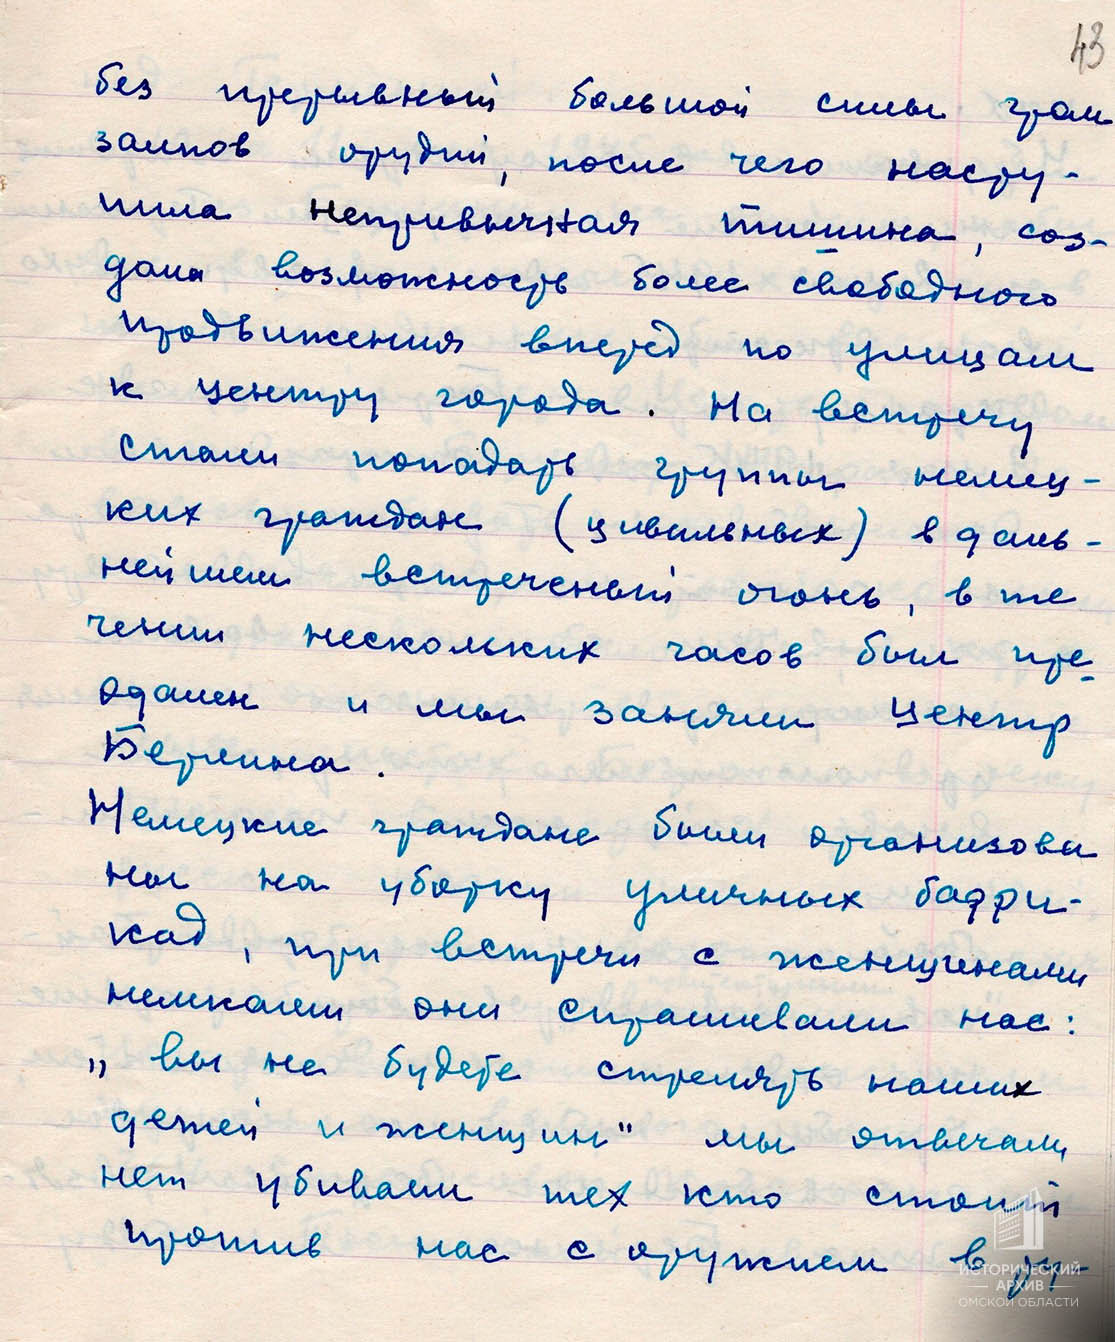 43
без прерывный большой силы гром
залпов орудий, после чего насту-
пила непривычная тишина, соз-
дала возможность более свободного
продвижения вперёд по улицам
к центру города. На встречу
стали попадать группы немец-
ких граждан (цивильных) в даль-
нейшем встреченый огонь, в те
чении нескольких часов был пре-
одален и мы заняли центр
Берлина.
Немецкие граждане были организова
ны на уборку уличных барри-
кад, при встречи с женщинами
немками они спрашивали нас:
„вы не будете стрелять наших
детей и женщин" мы отвечали
нет убивали тех кто стоит
против нас с оружием в ру-
ИСТОРИЧЕСКИЙ
АРХИВ
ОМСКОЙ ОБЛАСТИ